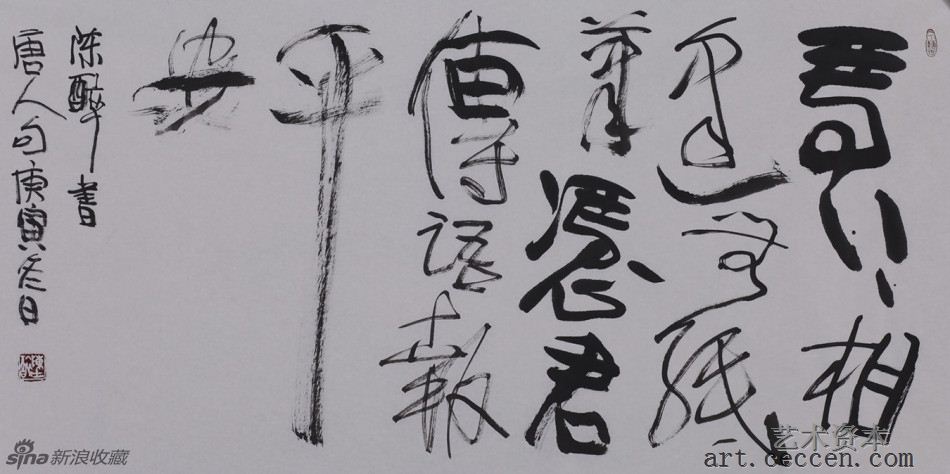 馬上相
逢無紙
筆憑君
傳語報
平
安
陳醉書
唐人句庚寅冬日
艺术资本
art.ceccen.com
sina新浪收藏